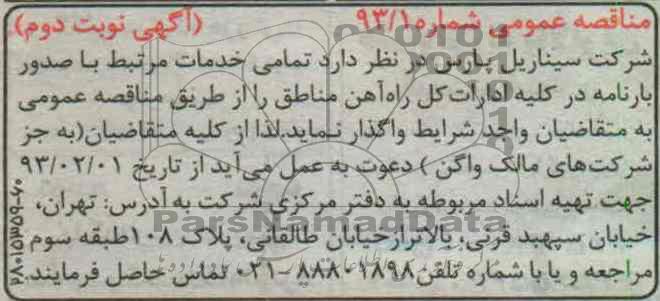 مناقصه عمومی شماره ۹۳/۱ (آگهی نوبت دوم)
شرکت سیناریل پارس در نظر دارد تمامی خدمات مرتبط با صدور
بارنامه در کلیه ادارات کل راه‌آهن مناطق را از طریق مناقصه عمومی
به متقاضیان واجد شرایط واگذار نماید.لذا از کلیه متقاضیان(به جز
شرکت‌های مالک واگن ) دعوت به عمل می‌آید از تاریخ ۹۳/۰۲/۰۱
جهت تهیه اسناد مربوطه به دفتر مرکزی شرکت به آدرس: تهران،
خیابان سپهبد قرنی، بالاتر از خیابان طالقانی، پلاک ۱۰۸ طبقه سوم
مراجعه و یا با شماره تلفن ۸۸۸۰۱۸۹۸-۰۲۱ تماس حاصل فرمایند.
ParsNamadData